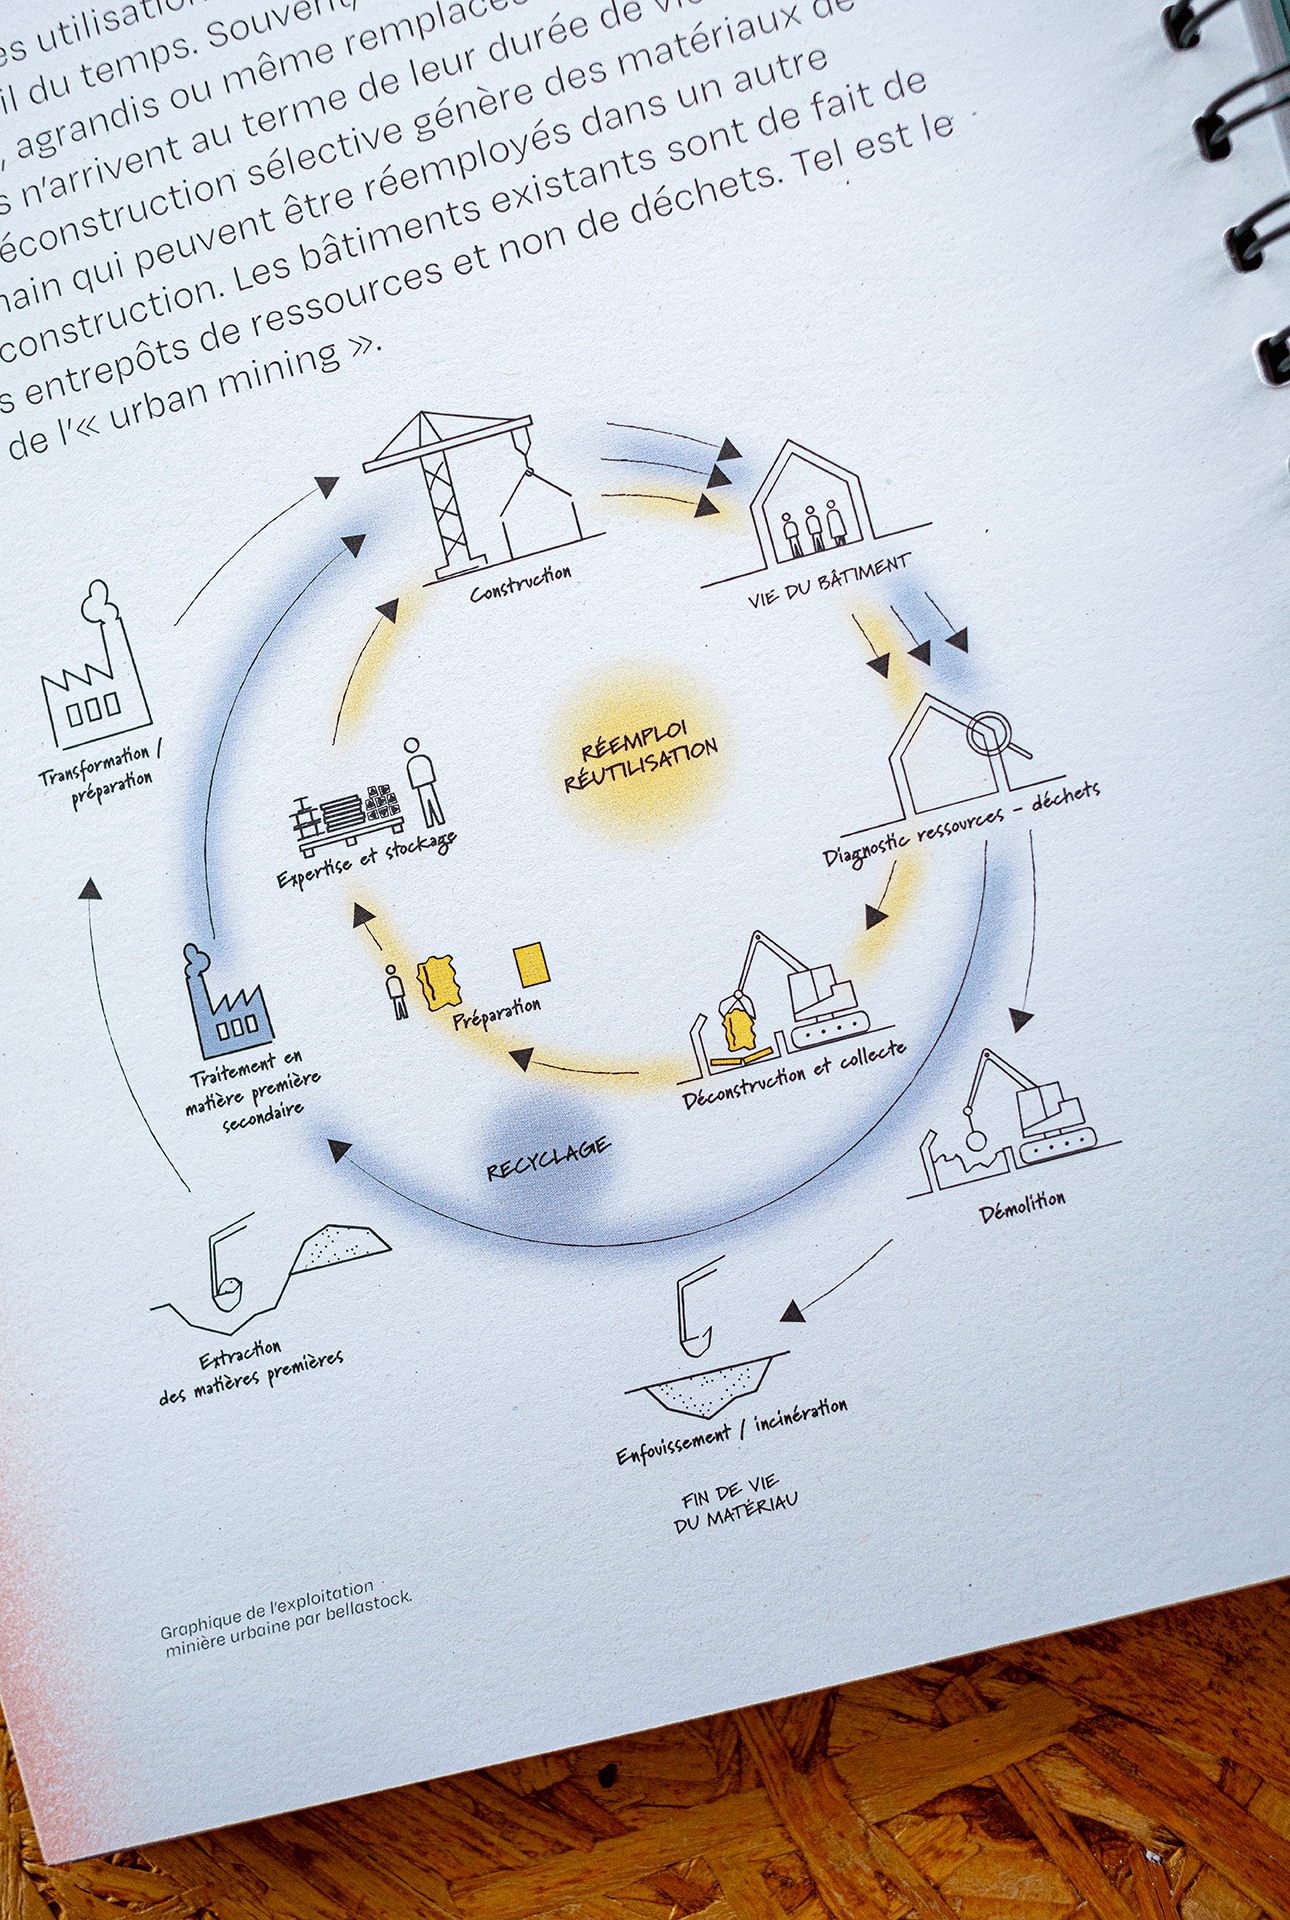 utilisation
du temps. Souvent,
, agrandis ou même remplacés
n'arrivent au terme de leur durée de
sélective génère des matériaux de
qui peuvent être réemployés dans un autre
construction. Les bâtiments existants sont de fait de
entrepôts de ressources et non de déchets. Tel est le
de l'« urban mining ».
Construction
VIE DU BÂTIMENT
Transformation /
préparation
RÉEMPLOI
RÉUTILISATION
Expertise et stockage
Diagnostic ressources – déchets
Préparation
Déconstruction et collecte
Traitement en
matière première
secondaire
RECYCLAGE
Démolition
Extraction
des matières premières
Enfouissement / incinération
FIN DE VIE
DU MATÉRIAU
Graphique de l'exploitation
minière urbaine par bellastock.